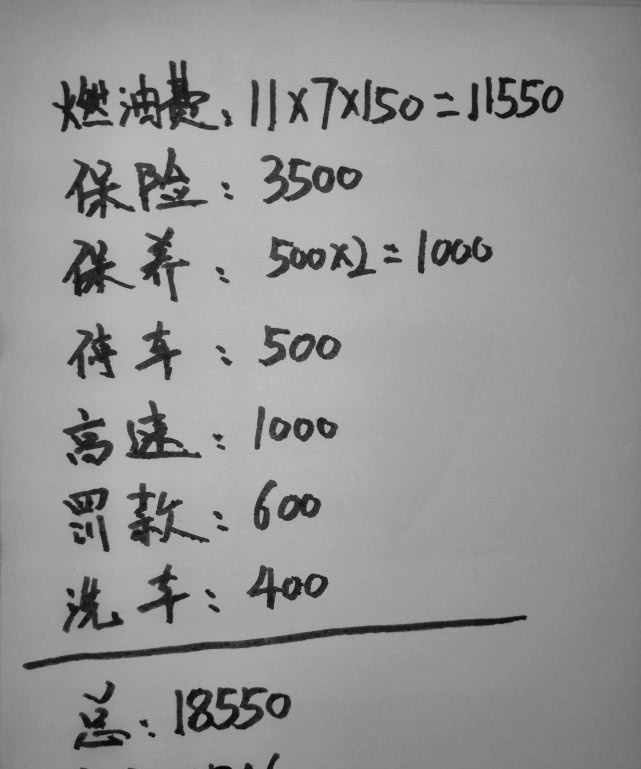 燃油费：11×7×150=11550
保险：3500
保养：500×2=1000
停车：500
高速：1000
罚款：600
洗车：400
总：18550